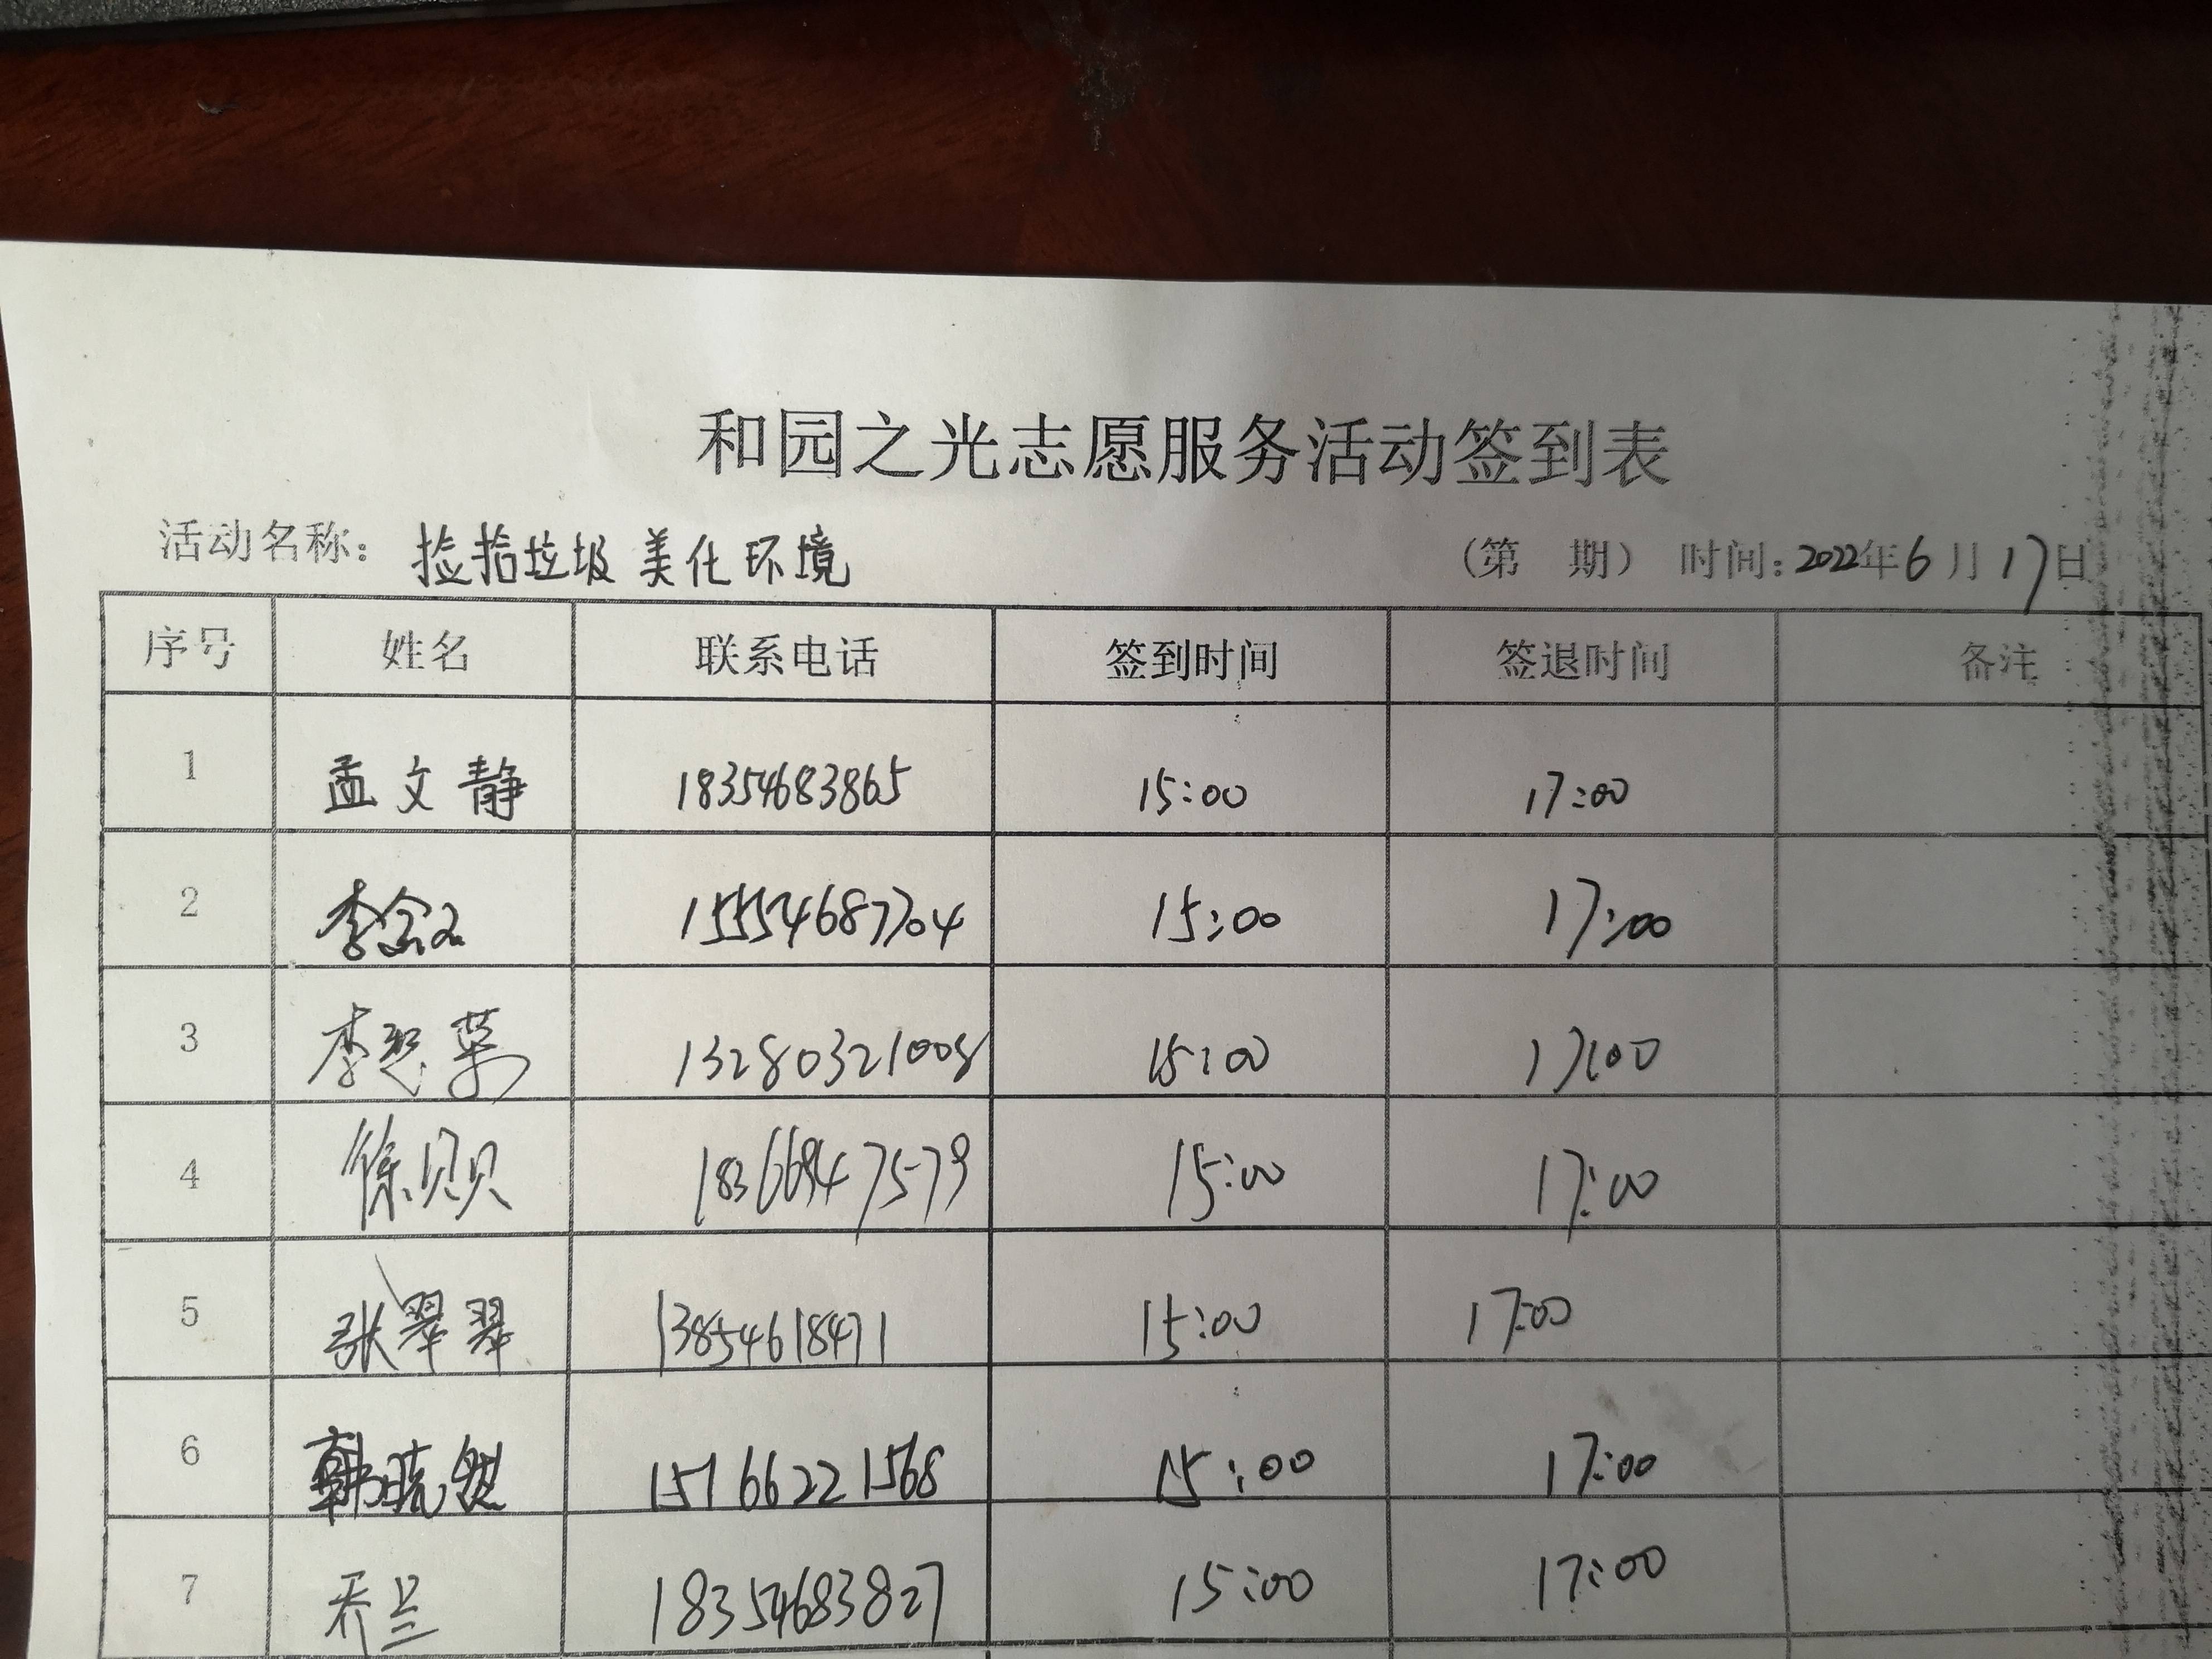 和园之光志愿服务活动签到表
活动名称：捡拾垃圾 美化环境 （第 期） 时间：2022年6月17日
序号 姓名 联系电话 签到时间 签退时间 备注
1 孟文静 18354683865 15:00 17:00
2 李 15554687704 15:00 17:00
3 李 13280321008 15:00 17:00
4 徐贝贝 18366947579 15:00 17:00
5 张翠翠 13854618471 15:00 17:00
6 韩晓 15166221568 15:00 17:00
7 乔兰 18354683827 15:00 17:00